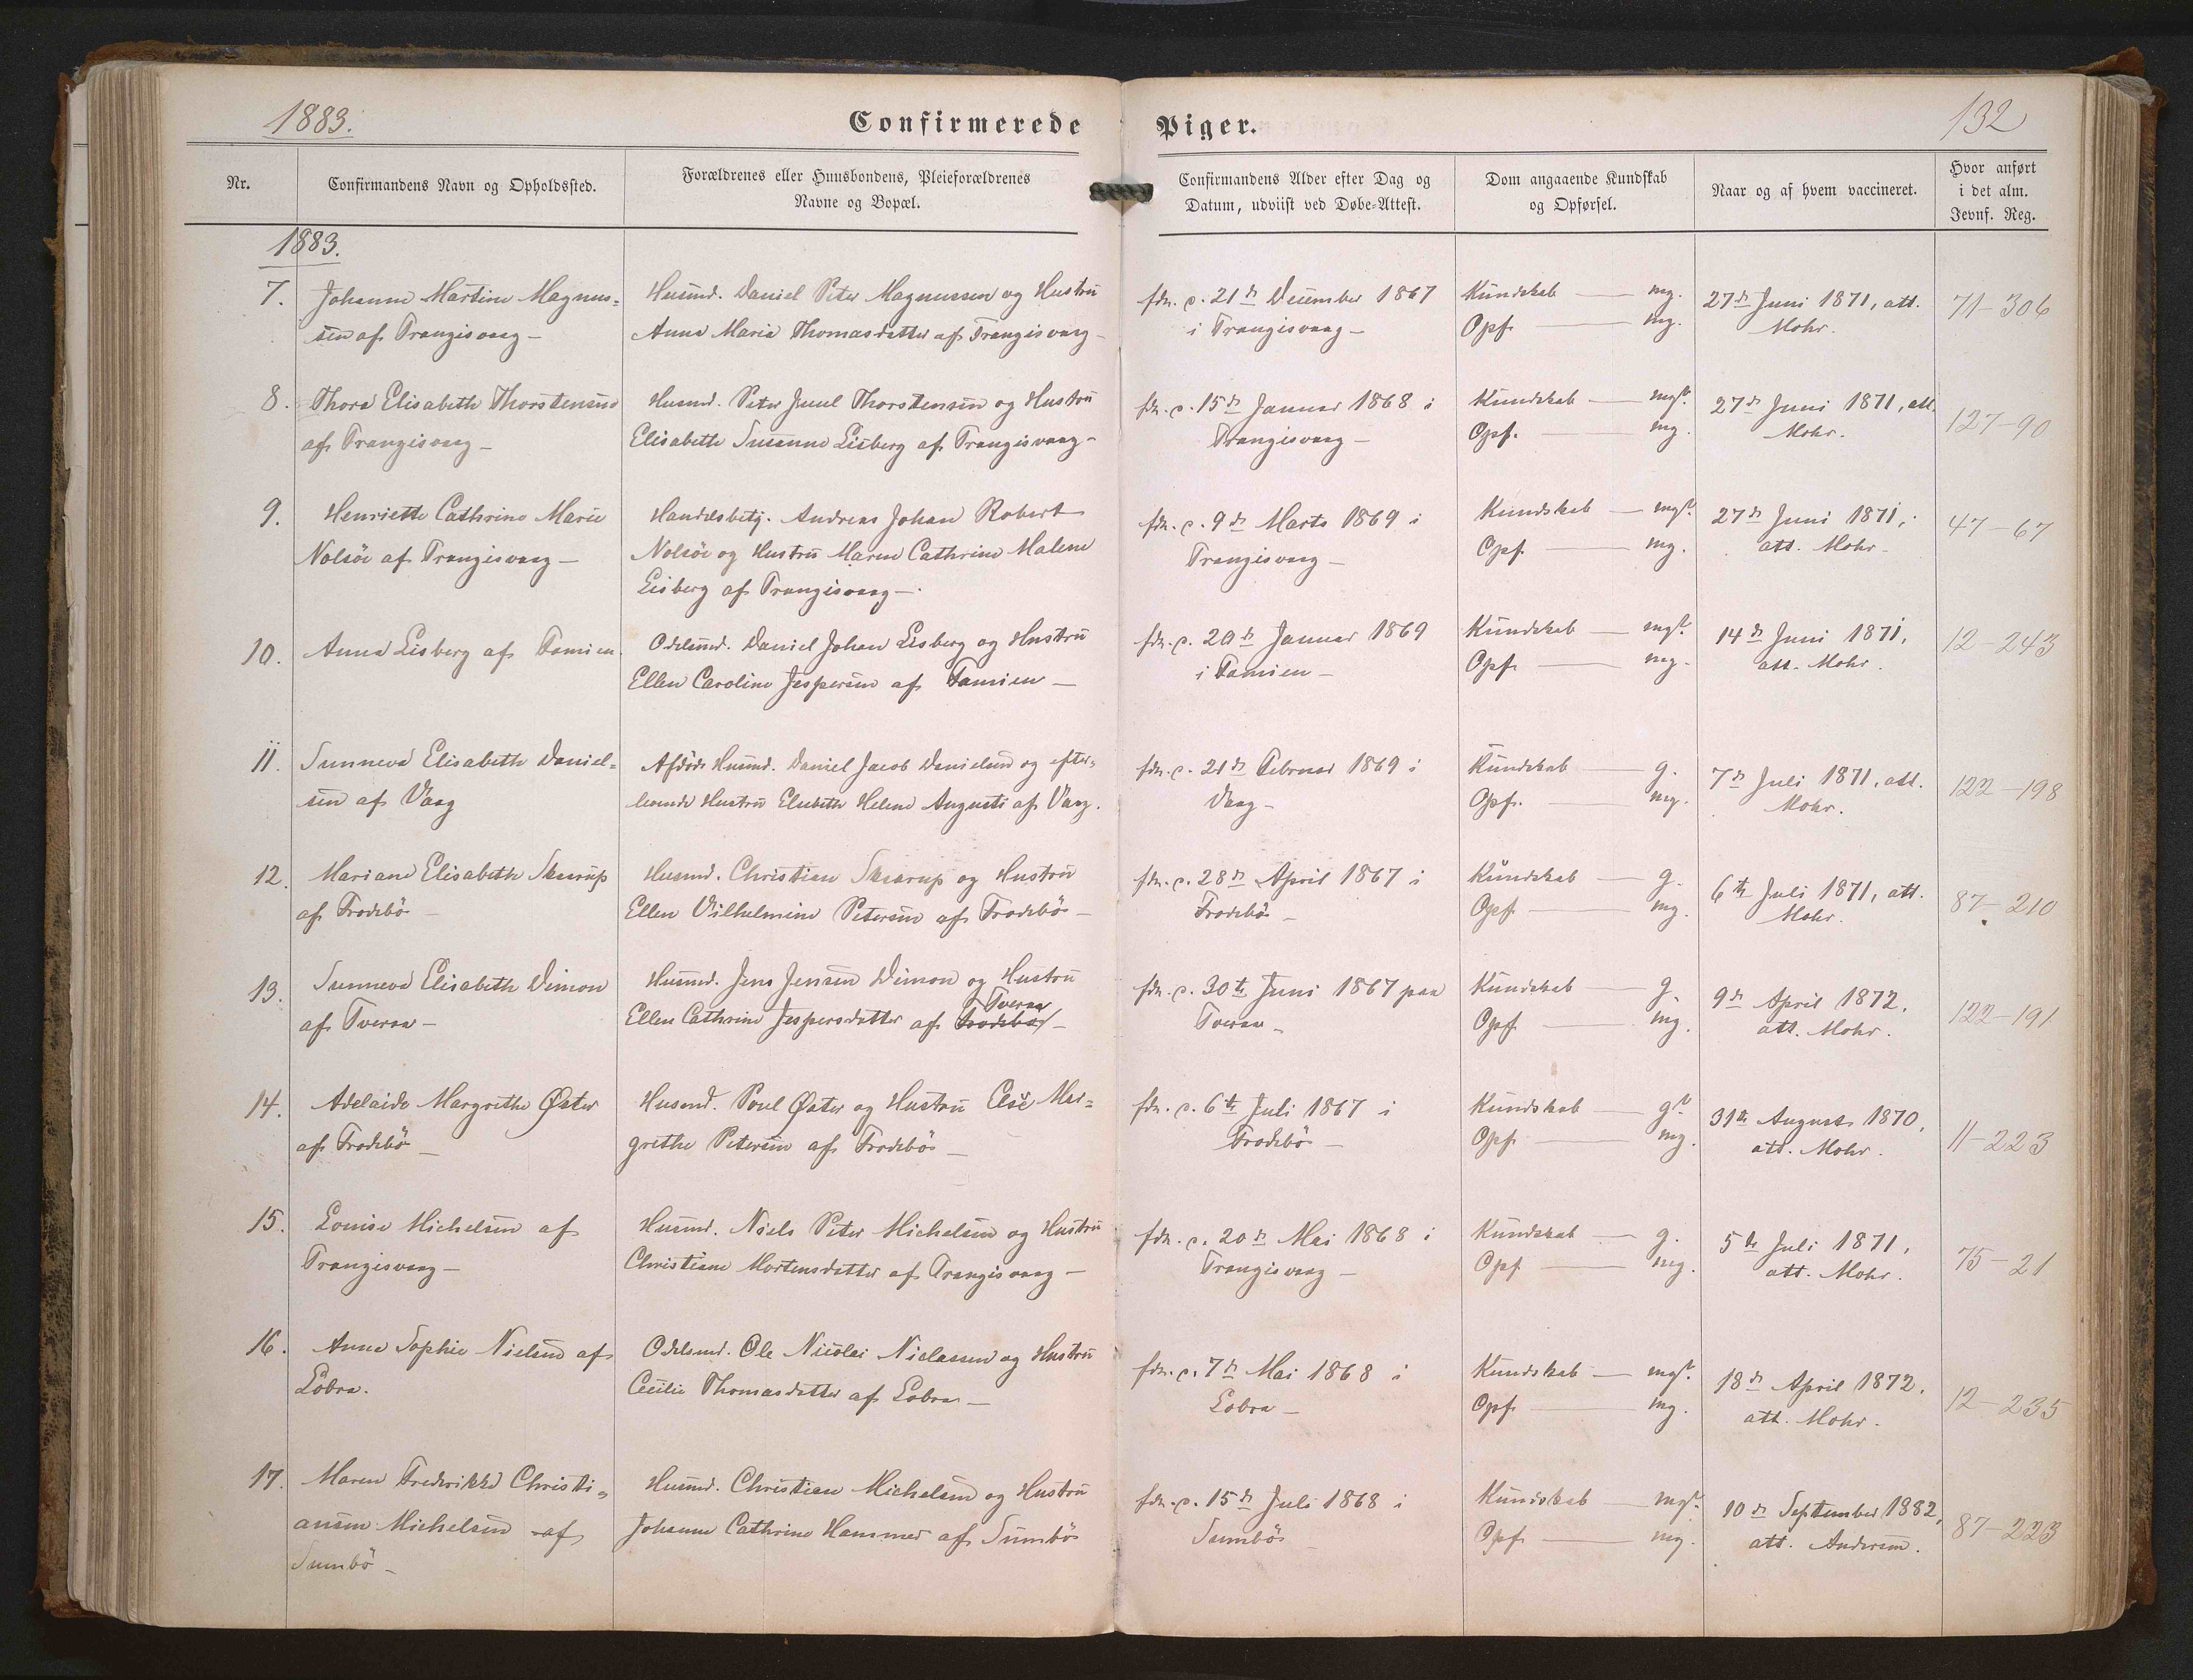 1883.
Confirmerede Piger.
132
Nr.
Confirmandens Navn og Opholdssted.
Forældrenes eller Huusbondens, Pleieforældrenes
Navne og Bopæl.
Confirmandens Alder efter Dag og
Datum, udviist ved Døbe-Attest.
Dom angaaende Kundskab
og Opførsel.
Naar og af hvem vaccineret.
Hvor anført
i det alm.
Jevnf. Reg.
1883.
7. Johanne Martine Magnus=
sen af Trangisvaag -
Husmd. Daniel Peter Magnussen og Hustru
Anna Maria Thomasdatter af Trangisvaag -
fdn. c. 21de December 1867
i Trangisvaag -
Kundskab — mg.
Opf. — mg.
27de Juni 1871, att.
Mohr.
71-306
8. Thora Elisabeth Thorstensen
af Trangisvaag -
Husmd. Peter Juul Thorstensen og Hustru
Elisabeth Susanne Lisberg af Trangisvaag -
fdn. c. 15de Januar 1868 i
Trangisvaag -
Kundskab — mgt.
Opf. — mg.
27de Juni 1871, att.
Mohr.
127-90
9. Henriette Cathrine Marie
Nolsöe af Trangisvaag -
Handelsbetj. Andreas Johan Robert
Nolsöe og Hustru Maren Cathrine Malene
Lisberg af Trangisvaag -
fdn. c. 9de Marts 1869 i
Trangisvaag -
Kundskab — mgt.
Opf. — mg.
27de Juni 1871,
att. Mohr.
47-67
10. Anna Lisberg af Famien.
Odelsmd. Daniel Johan Lisberg og Hustru
Ellen Caroline Jespersen af Famien -
fdn. c. 20de Januar 1869
i Famien -
Kundskab — mgt.
Opf. — mg.
14de Juni 1871,
att. Mohr.
12-243
11. Sunneva Elisabeth Daniel=
sen af Vaag
Afdöde Husmd. Daniel Jacob Danielsen og efter=
levende Hustru Elsebeth Helene Augusti af Vaag.
fdn. c. 21de Februar 1869 i
Vaag -
Kundskab — g.
Opf. — mg.
7de Juli 1871, att.
Mohr.
122-198
12. Mariane Elisabeth Skaarup
af Frodebö -
Husmd. Christian Skaarup og Hustru
Ellen Vilhelmine Petersen af Frodebö -
fdn. c. 28de April 1867 i
Frodebö -
Kundskab — g.
Opf. — mg.
6te Juli 1871, att.
Mohr.
87-210
13. Sunneva Elisabeth Dimon
af Tveraa -
Husmd. Jens Jensen Dimon og Hustru
Ellen Cathrine Jespersdatter af Frodebö Tveraa -
fdn. c. 30te Juni 1867 paa
Tveraa -
Kundskab — g.
Opf. — mg.
9de April 1872.
att. Mohr.
122-191
14. Adelaide Margrethe Øster
af Frodebö -
Husmd. Poul Øster og Hustru Else Mar=
grethe Petersen af Frodebö -
fdn. c. 6te Juli 1867 i
Frodebö -
Kundskab — gt.
Opf. — mg.
31te August 1870,
att. Mohr.
11-223
15. Louise Michelsen af
Trangisvaag -
Husmd. Niels Peter Michelsen og Hustru
Christiane Mortensdatter af Trangisvaag -
fdn. c. 20de Mai 1868 i
Trangisvaag -
Kundskab — g.
Opf. — mg.
5te Juli 1871,
att. Mohr.
75-21
16. Anna Sophie Nielsen af
Lobra.
Odelsmd. Ole Nicolai Niclassen og Hustru
Cecilie Thomasdatter af Lobra -
fdn. c. 7de Mai 1868 i
Lobra -
Kundskab — mgt.
Opf. — mg.
18de April 1872.
att. Mohr.
12-235
17. Maren Frederikke Christi=
ansen Michelsen af
Sumbö -
Husmd. Christian Michelsen og Hustru
Johanne Cathrine Hammer af Sumbö
fdn. c. 15de Juli 1868 i
Sumbö -
Kundskab — mgt.
Opf. — mg.
10de September 1882,
att. Andersen.
87-223